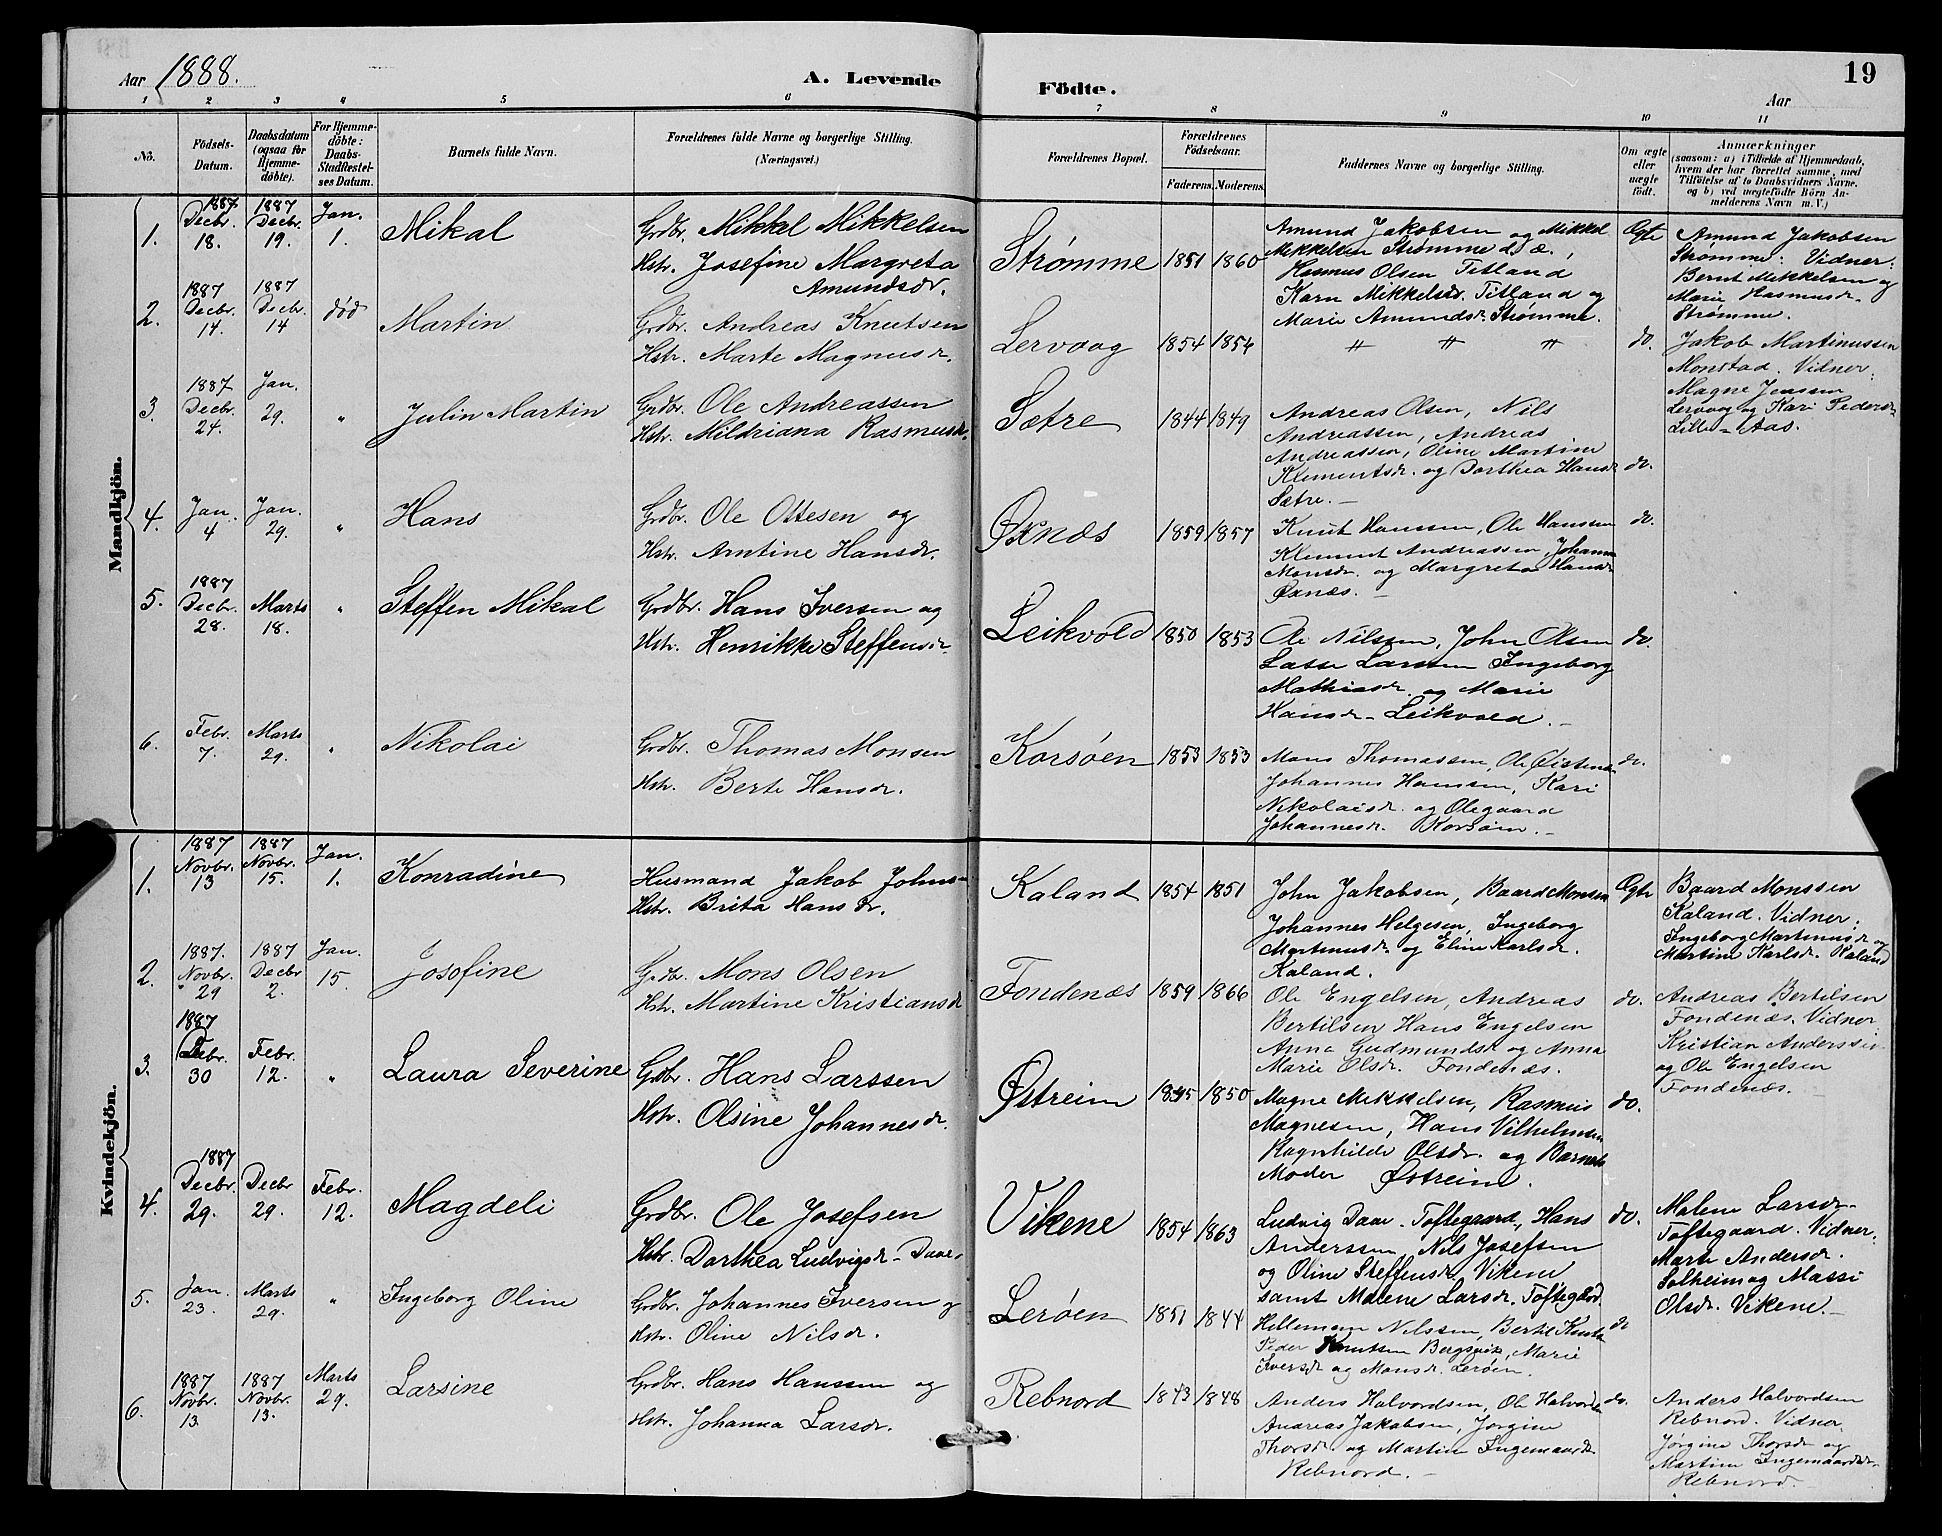 19
Aar 1888.
A. Levende Födte.
Aar
1 2 3 4 5 6 7 8 9 10 11
No.
Födsels-Datum.
Daabsdatum (ogsaa for Hjemme-döbte).
For Hjemme-döbte: Daabs-Stadfæstel-ses Datum.
Barnets fulde Navn.
Forældrenes fulde Navne og borgerlige Stilling. (Næringsvei.)
Forældrenes Bopæl.
Forældrenes Födselsaar.
Faderens. Moderens.
Faddernes Navne og borgerlige Stilling.
Om ægte eller uægte födt.
Anmærkninger
(saasom: a) i Tilfælde af Hjemmedaab,
hvem der har forrettet samme, med
Tilföielse af to Daabsvidners Navne.
og b) ved uægtefödte Börn An-
melderens Navn m. V.)
Mandkjön.
1. 1887 Decbr. 18. 1887 Decbr. 19. Jan. 1. Mikal
Grdbr. Mikkel Mikkelsen
Hstr. Josefine Margreta
Amundsdr.
Strømme 1851 1860
Amund Jakobsen og Mikkel
Mikkelsen Strømme d. æ.,
Rasmus Olsen Titland
Karn Mikkelsdr. Titland og
Marie Amundsdr. Strømme.
Ægte
Amund Jakobsen
Strømme. Vidner:
Bernt Mikkelsen og
Marie Rasmusdr.
Strømme.
2. 1887 Decbr. 14. 1887 Decbr. 14 død Martin
Grdbr. Andreas Knutsen
Hstr. Marte Magnusdr.
Lervaag 1854 1854
" " "
do.
Jakob Martinussen
Monstad. Vidner:
Magne Jenssen
Lervaag og Kari Pedersdr.
Lille-Aas.
3 1887 Decbr. 24. Jan. 29. " Julin Martin
Grdbr. Ole Andreassen
Hstr. Mildriana Rasmusdr.
Sætre 1844 1849
Andreas Olsen, Nils
Andreassen, Andreas
Andreassen, Oline Martine
Klementsdr. og Dorthea Hansdr
Sætre.
do.
4. Jan. 4 Jan. 29. " Hans
Grdbr. Ole Ottesen og
Hstr. Arntine Hansdr.
Øxnæs 1859 1857
Knut Hanssen, Ole Hanssen
Klement Andreassen, Johanna
Monsdr. og Margreta Hansdr
Øxnæs.
do.
5. 1887 Decbr. 28. Marts 18. " Steffen Mikal
Grdbr. Hans Iversen og
Hstr. Henrikke Steffensdr.
Leikvold 1850 1853
Ole Nilssen, John Olsen
Lasse Larssen Ingeborg
Mathiasdr. og Marie
Hansdr. Leikvold.
do.
6. Febr. 7. Marts 29. " Nikolai
Grdbr. Thomas Monsen
Hstr. Berte Hansdr.
Korsøen 1853 1853
Mons Thomassen, Ole Østensen
Johannes Hanssen, Kari
Nikolaisdr. og Olegaard
Johannesdr. Korsøen.
do.
Kvindekjön.
1. 1887 Novbr. 13 1887 Novbr. 15. Jan. 1. Konradine
Husmand Jakob Johns-
Hstr. Brita Hansdr.
Kaland 1854 1851
John Jakobsen, Baard Monsen
Johannes Helgesen, Ingeborg
Martinusdr og Eline Karlsdr.
Kaland.
Ægte
Baard Monssen
Kaland. Vidner:
Ingeborg Martinusdr og
Martine Karlsdr. Kaland
2. 1887. Novbr. 29 1887 Decbr 2. Jan. 15. Josofine
Grdbr. Mons Olsen
Hstr. Martine Kristiansdr
Fondenæs 1859 1866
Ole Engelsen, Andreas
Bertilsen Hans Engelsen
Anna Gudmundsdr og Anna
Marie Olsdr. Fondenæs.
do.
Andreas Bertilsen
Fondenæs. Vidner
Kristian Anderssen
og Ole Engelsen
Fondenæs.
3. 1887 30 Febr. 12. " Laura Severine
Grdbr. Hans Larssen
Hstr. Olsine Johannesdr.
Østreim 1845 1850
Magne Mikkelsen, Rasmus
Magnesen, Hans Vilhelmsen
Ragnhilde Olsdr. og Barnets
Moder Østreim.
do.
4. 1887 Decbr. 29. Decbr 29. Febr. 12. Magdeli
Grdbr. Ole Josefsen
Hstr. Dorthea Ludvigsdr. Daae.
Vikene 1854 1863
Ludvig Daae. Toftegaard, Hans
Anderssen, Nils Josefsen
og Oline Steffensdr. Vikene
samt Malene Larsdr. Toftegard.
do.
Malene Larsdr.
Toftegaard. Vidner:
Marte Andersdr.
Solheim og Massi
Olsdr. Vikene.
5. Jan. 23. Marts 29. " Ingeborg Oline
Grdbr. Johannes Iversen og
Hstr. Oline Nilsdr.
Lerøen 1851 1844
Hellemann Nilssen, Bertil Knuts
Peder Knutsen Bergsvik, Marie
Iversdr og Monsdr. Lerøen.
do
6. 1887 Novbr. 13 1887 Novbr. 13. Marts 29. Larsine
Grdbr. Hans Hanssen og
Hstr. Johanna Larsdr.
Rebnord 1843 1848
Anders Halvordsen, Ole Halvordsen
Andreas Jakobsen, Jørgine
Thorsdr og Martine Ingemaardr.
Rebnord.
do.
Anders Halvordsen
Rebnord. Vidner
Jørgine Thorsdr og
Martine Ingemaardsdr.
Rebnord.